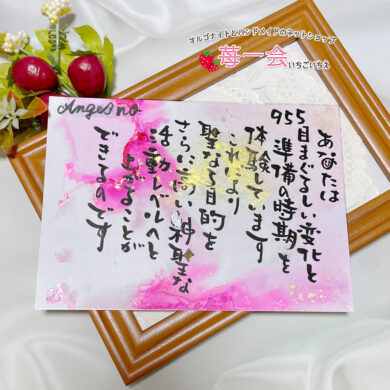 オルゴナイトとハンドメイドのネットショップ
苺一会
いちごいちえ
Angel no
955
あなたは
目まぐるしい変化と
準備の時期を
体験しています
これにより
聖なる目的を
さらに高い神聖な
活動レベルへと
上がることが
できるのです